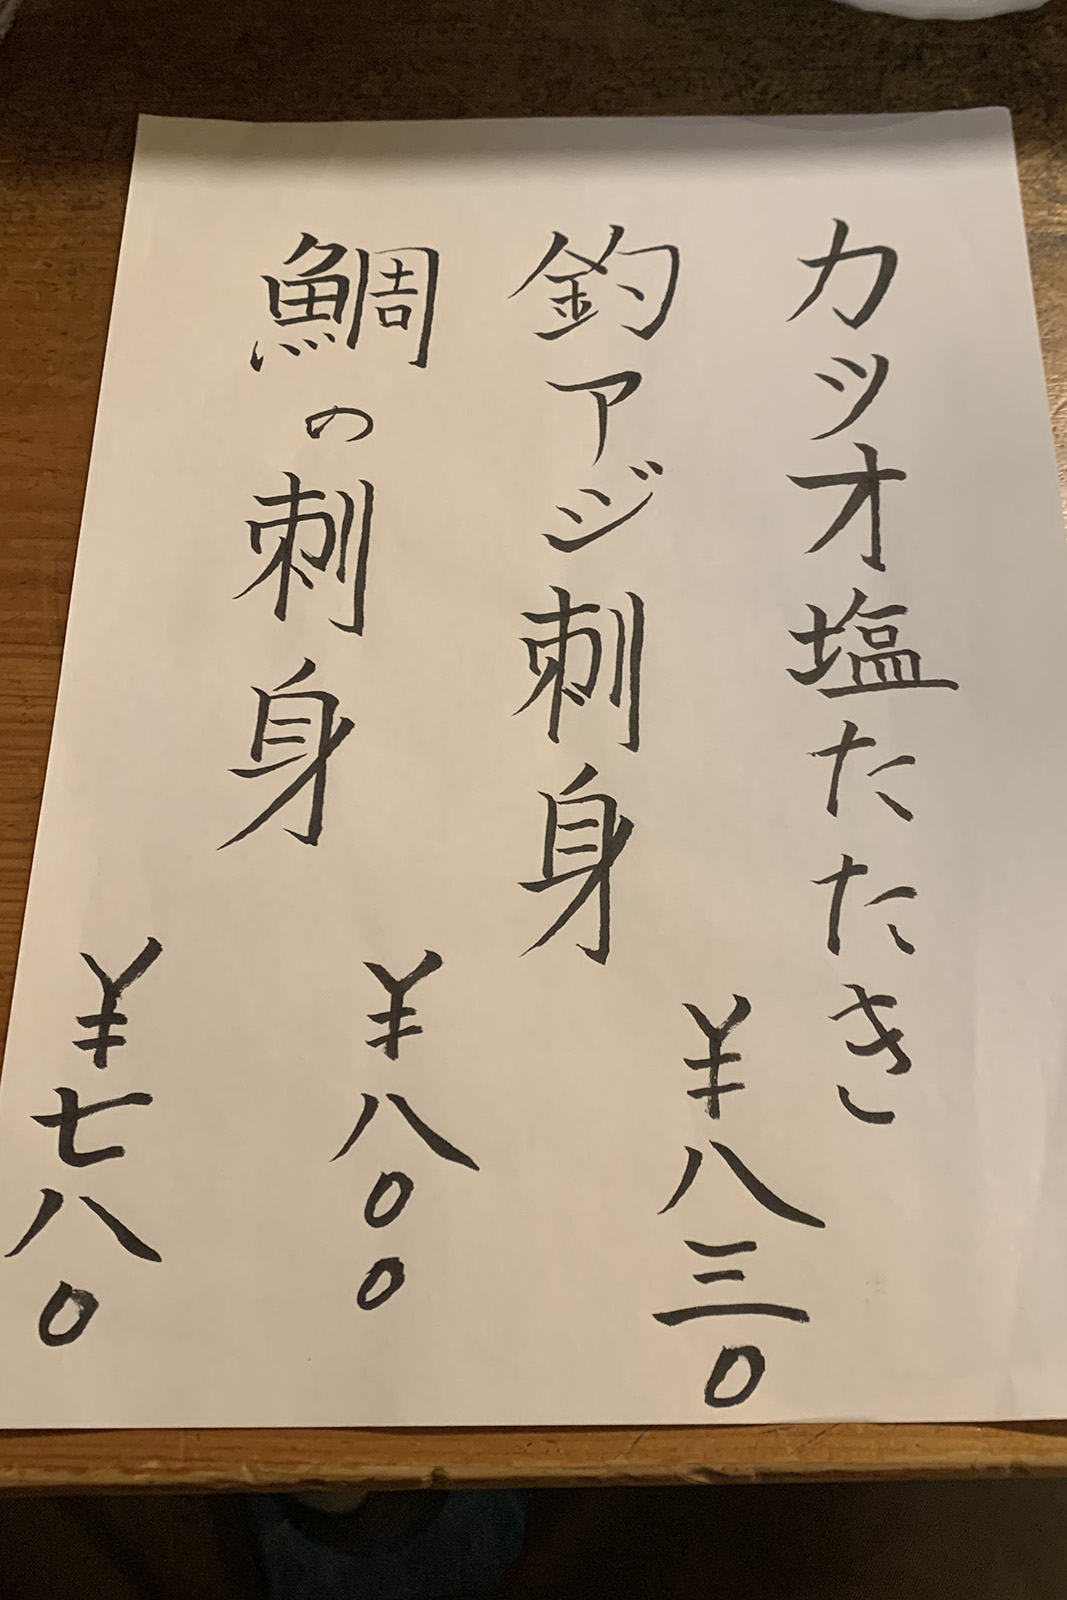 カツオ塩たたき
¥八三0
釣アジ刺身
¥八00
鯛の刺身
¥七八0